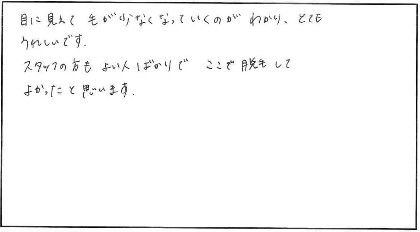 目に見えて 毛が少なくなっていくのが わかり、とても
うれしいです.
スタッフの方も よい人ばかりで ここで脱毛して
よかったと思います.